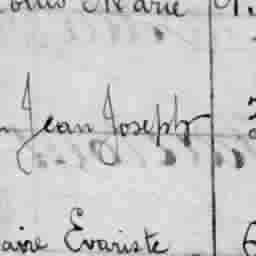 Louis Marie
Jean Joseph
aire Evariste 6